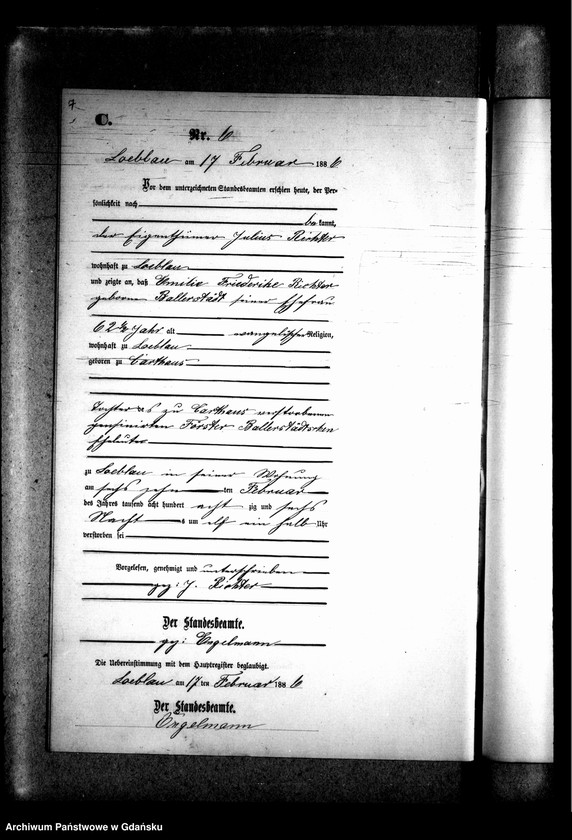 C.
Nr. 6
Loeblau am 17 Februar 1886
Vor dem unterzeichneten Standesbeamten erschien heute, der Per-
sönlichkeit nach
be kannt,
der Eigenthümer Julius Richter
wohnhaft zu Loeblau
und zeigte an, daß Emilie Friederike Richter
geborne Ballerstädt seiner Ehefrau
62 ¾ Jahr alt evangelischer Religion,
wohnhaft zu Loeblau
geboren zu Carthaus
Tochter des zu Carthaus verstorbenen
pensionirten Förster Ballerstädtschen
Eheleute
zu Loeblau in seiner Wohnung
am sechs zehn ten Februar
des Jahres tausend acht hundert acht zig und sechs
Nacht s um elf ein halb Uhr
verstorben sei
Vorgelesen, genehmigt und unterschrieben
gez: J. Richter
Der Standesbeamte.
gez: Engelmann
Die Uebereinstimmung mit dem Hauptregister beglaubigt.
Loeblau am 17 ten Februar 1886
Der Standesbeamte.
Engelmann
Archiwum Państwowe w Gdańsku